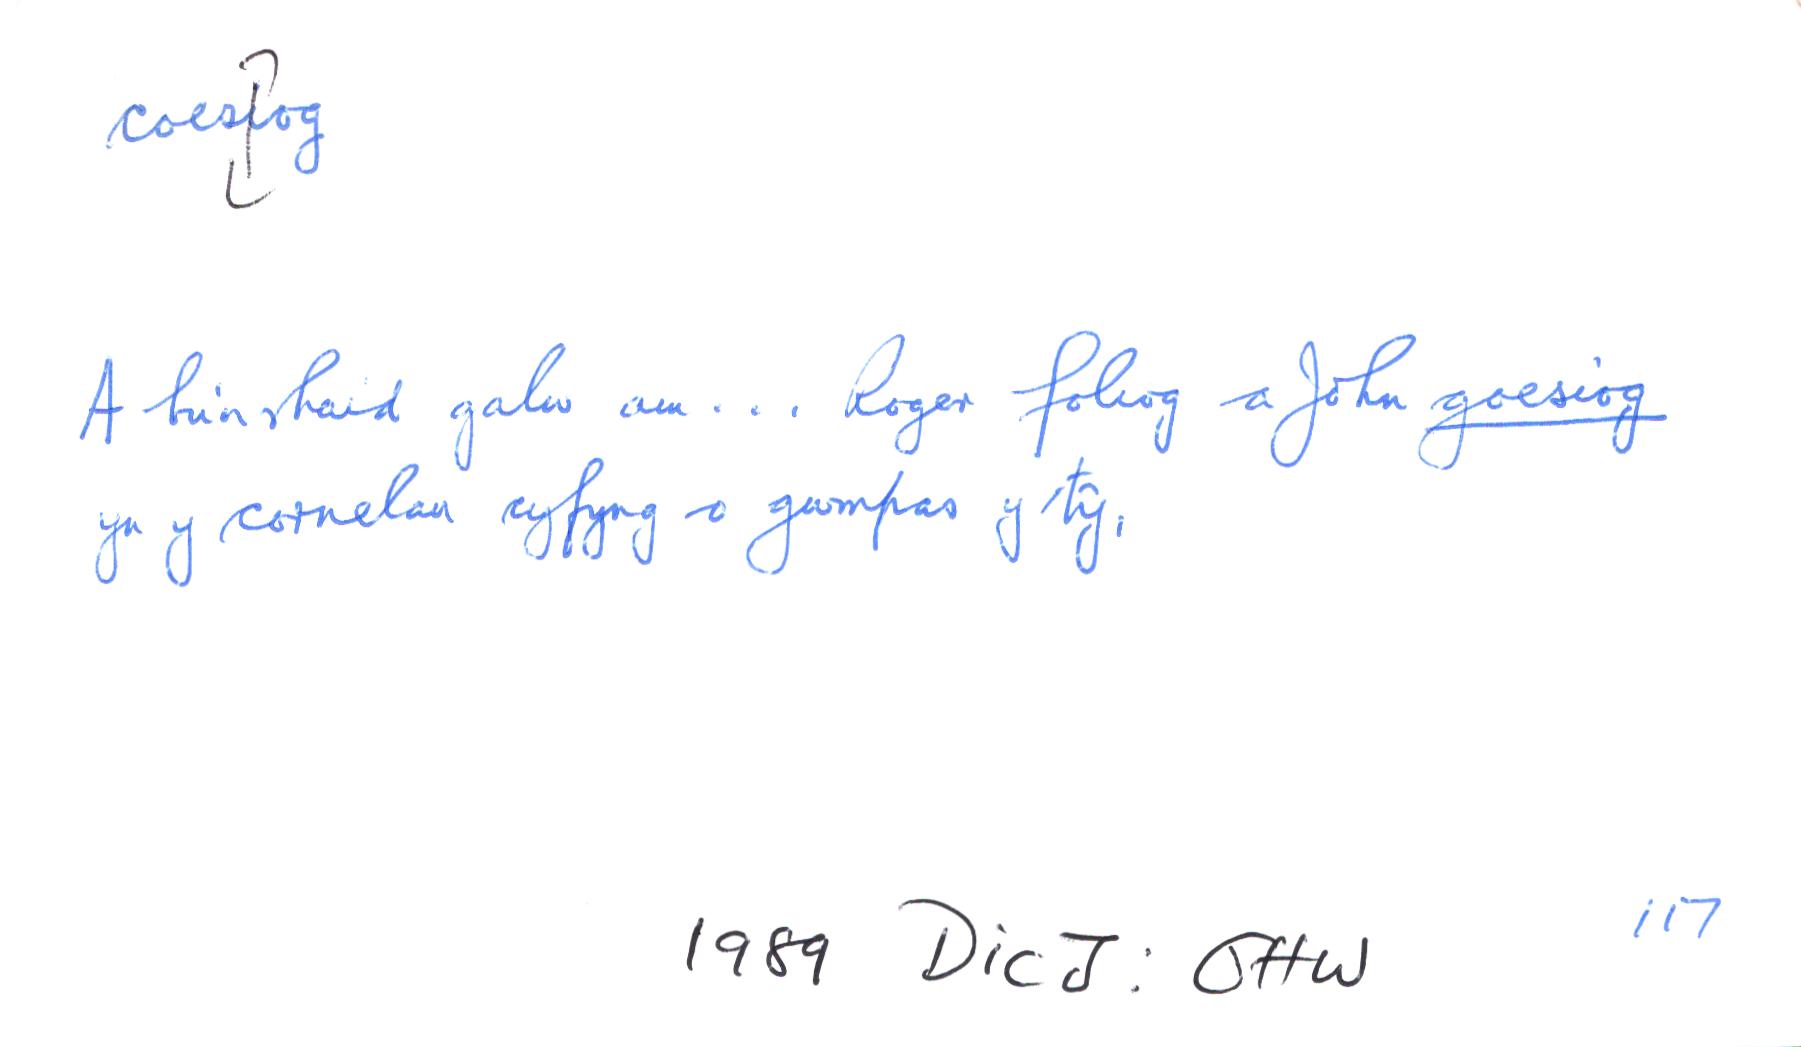 coesiog
A bu'n rhaid galw am . . . Roger foliog a John goesiog
yn y cornelau cyfyng o gwmpas y tŷ.
1989 Dic J: OHW
117